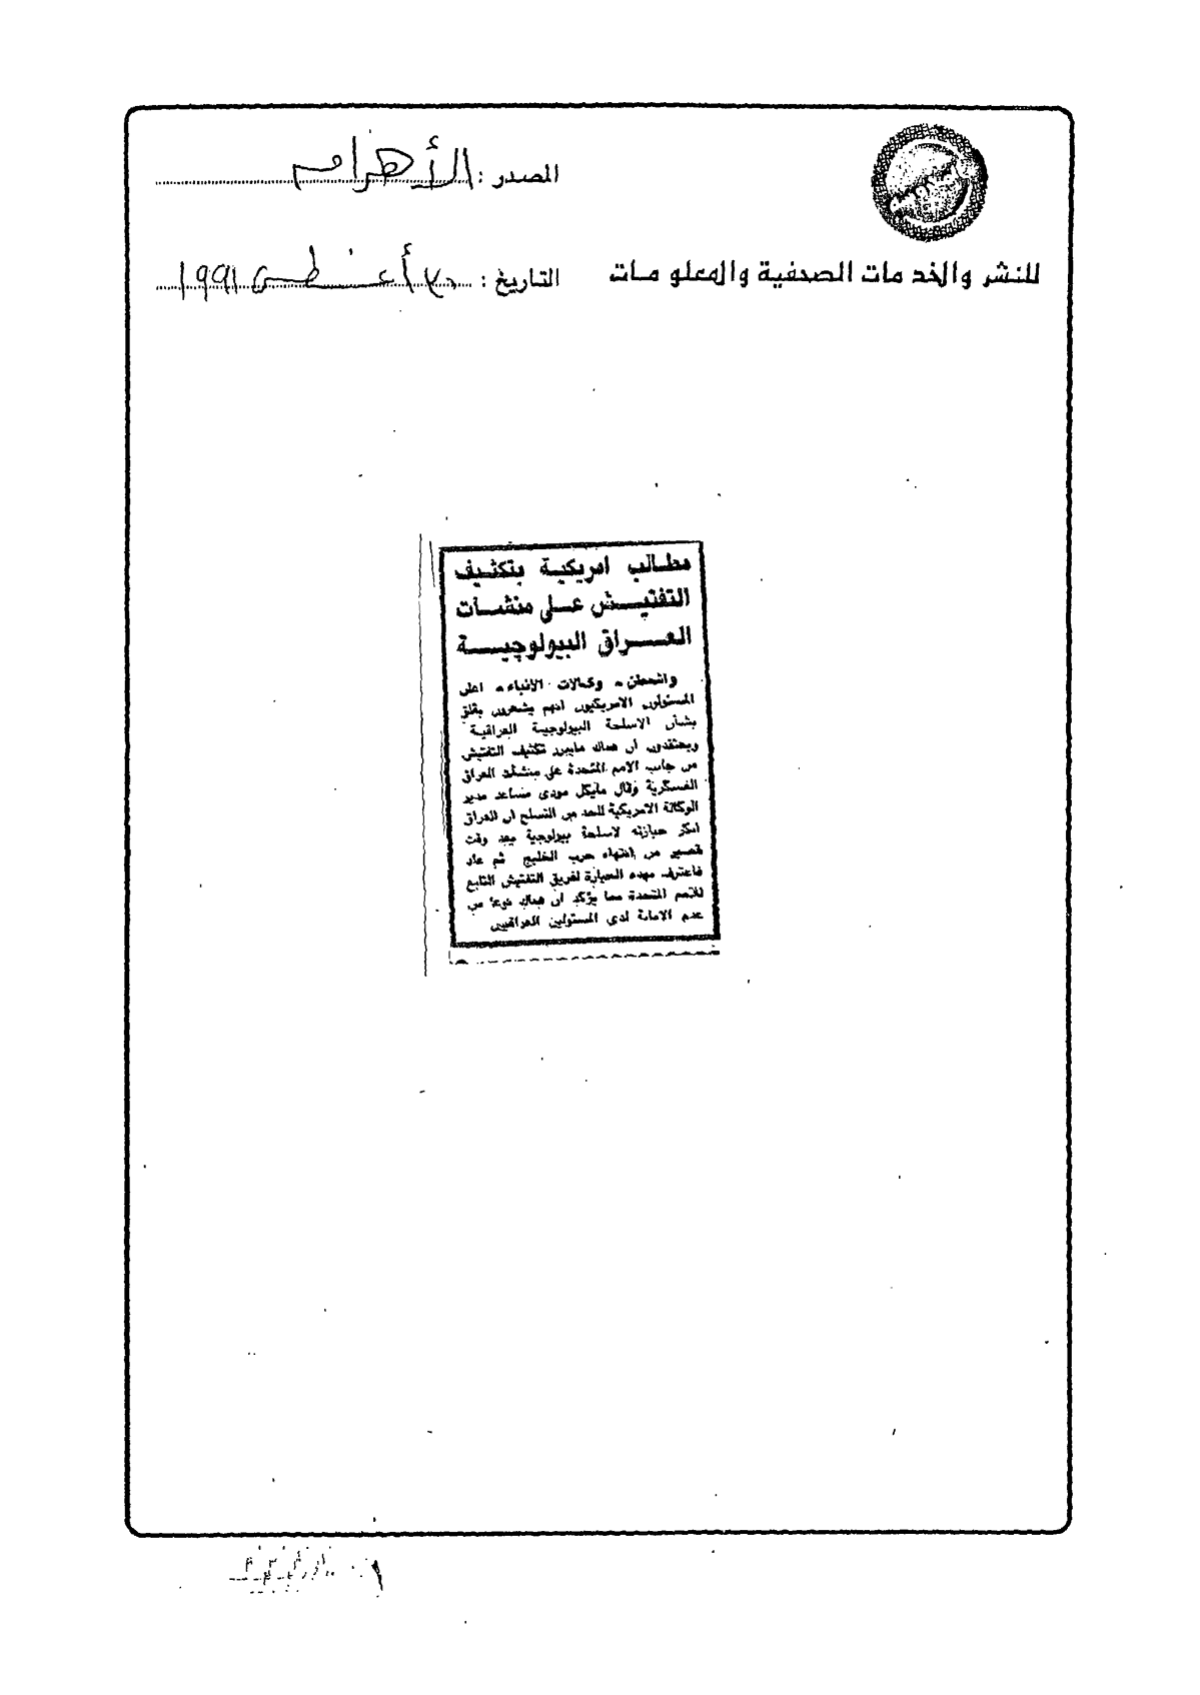 المصدر : الأهرام
للنشر والخدمات الصحفية والمعلومات
التاريخ : ٢٠ أغسطس ١٩٩١
مطالب امريكية بتكثيف
التفتيش على منشات
العراق البيولوجية
واشنطن ـ وكالات الأنباء ـ اعلن
المسئولون الامريكيون انهم يشعرون بقلق
بشأن الاسلحة البيولوجية العراقية
ويعتقدون ان هناك مايبرر تكثيف التفتيش
من جانب الامم المتحدة على منشآت العراق
العسكرية وقال مايكل مودى مساعد مدير
الوكالة الامريكية للحد من التسلح ان العراق
انكر حيازته لاسلحة بيولوجية بعد وقت
قصير من انتهاء حرب الخليج ثم عاد
فاعترف بهذه الحيازة لفريق التفتيش التابع
للامم المتحدة مما يؤكد ان هناك نوعا من
عدم الامانة لدى المسئولين العراقيين